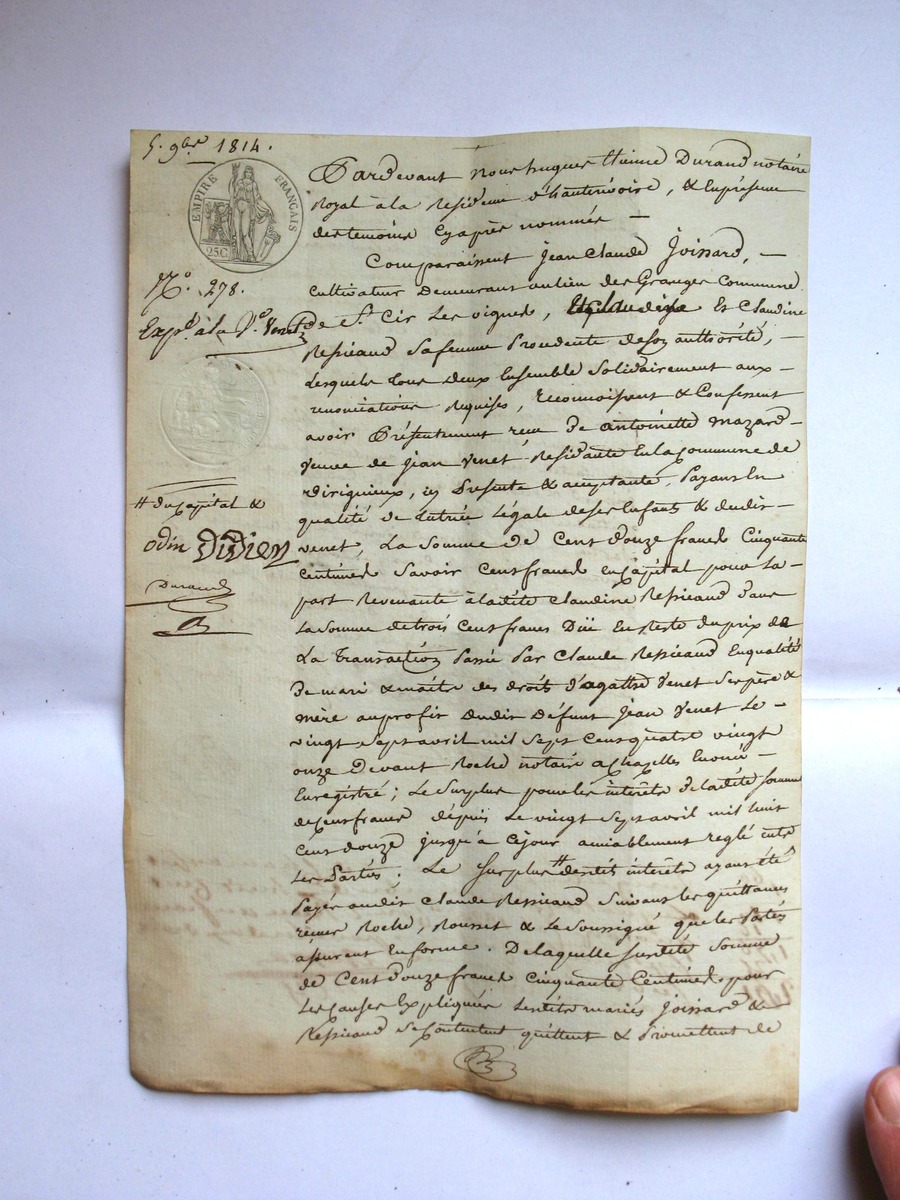 5. 9bre 1814.
EMPIRE FRANÇAIS
25C.
No. 278.
Expé. à la Ve. Venet
# du Capital &
odin Didier
Durand
Pardevant Nous hugues Etienne Durand notaire
Royal à la Residence d'hauterivoire, & En présence
des temoins Cyaprès nommés —
Comparaissent Jean Claude Joissard, —
Cultivateur Demeurant au lieu des Granges Commune
de St. Cir Les vignes, Et Claudine
Ressicaud Safemme Procedente de son authorité, —
Lesquels tous deux Ensemble Solidairement aux
renonciations Requises, reconnoissent & Confessent
avoir Présentement reçu de Antoinette Mazard
veuve de Jean Venet Residante En la Commune de
, icy Presente & acceptante, Payant En
qualité de tutrice Légale de ses Enfants & dudit
venet, La Somme de Cent douze francs Cinquante
Centimes Savoir Cent francs en Capital pour La
part Revenante à ladite Claudine Ressicaud dans
La Somme de trois Cent francs Düe En reste du prix de
La transaction Passée Par Claude Ressicaud En qualité
de mari & maitre des droits d'agathe Venet Ses père &
mère au profit dudit Défunt Jean Venet Le
vingt Sept avril mil Sept Cent quatre vingt
onze Devant Roche notaire a Chazelles
Enregistré; Le Surplus pour les intérêts de ladite Somme
de Cent francs depuis Le vingt Sept avril mil huit
Cent douze jusqu'à Cejour amiablement reglé entre
Les Parties; Le Surplus # desdits intérêts ayant été
Payés audit Claude Ressicaud Suivant les quittances
reçues Roche, Rousset & Le Soussigné que les Parties
assurent En forme. De laquelle Susdite Somme
de Cent douze francs Cinquante Centimes, pour
Les Causes Expliquées lesdits mariés Joissard &
Ressicaud Se Contentent quittent & Promettent de